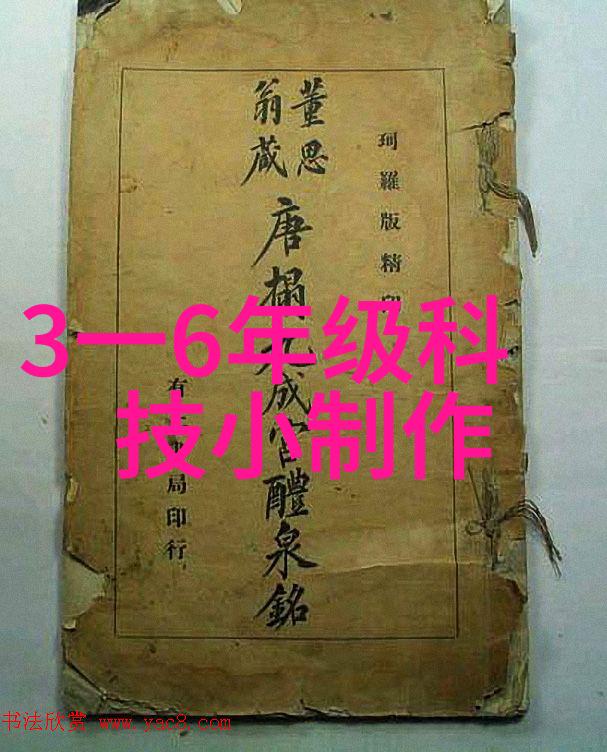 董思
翁藏
唐搨九成宮醴泉銘
珂羅版精印
有正書局印行
3一6年级科
技小制作
书法欣赏 www.yac8.com